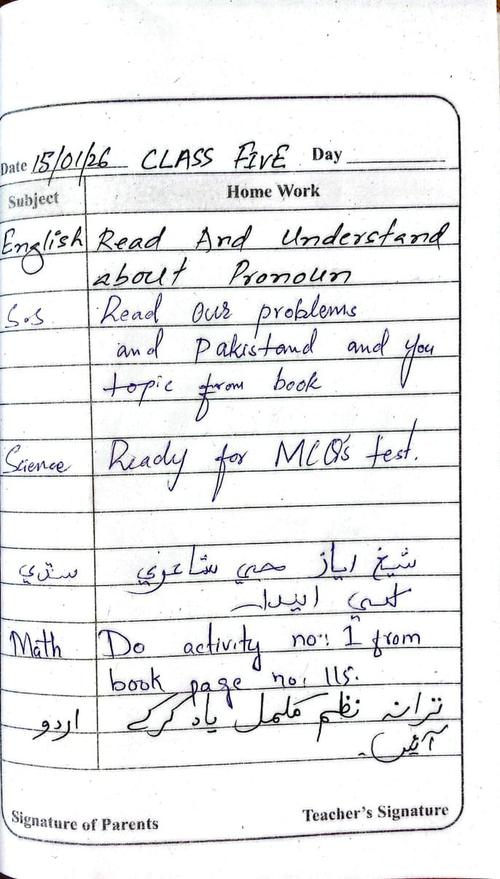 Date 15/01/26 CLASS FIVE Day
Subject Home Work
English Read And Understand
about Pronoun
S.S Read Our problems
and Pakistand and you
topic from book
Science Ready for MCQ's test.
سنڌي شيخ اياز جي شاعري
Math Do activity no: 1 from
book page no. 115.
اردو ترانہ نظم مکمل یاد کرکے
آئیں۔
Signature of Parents Teacher's Signature